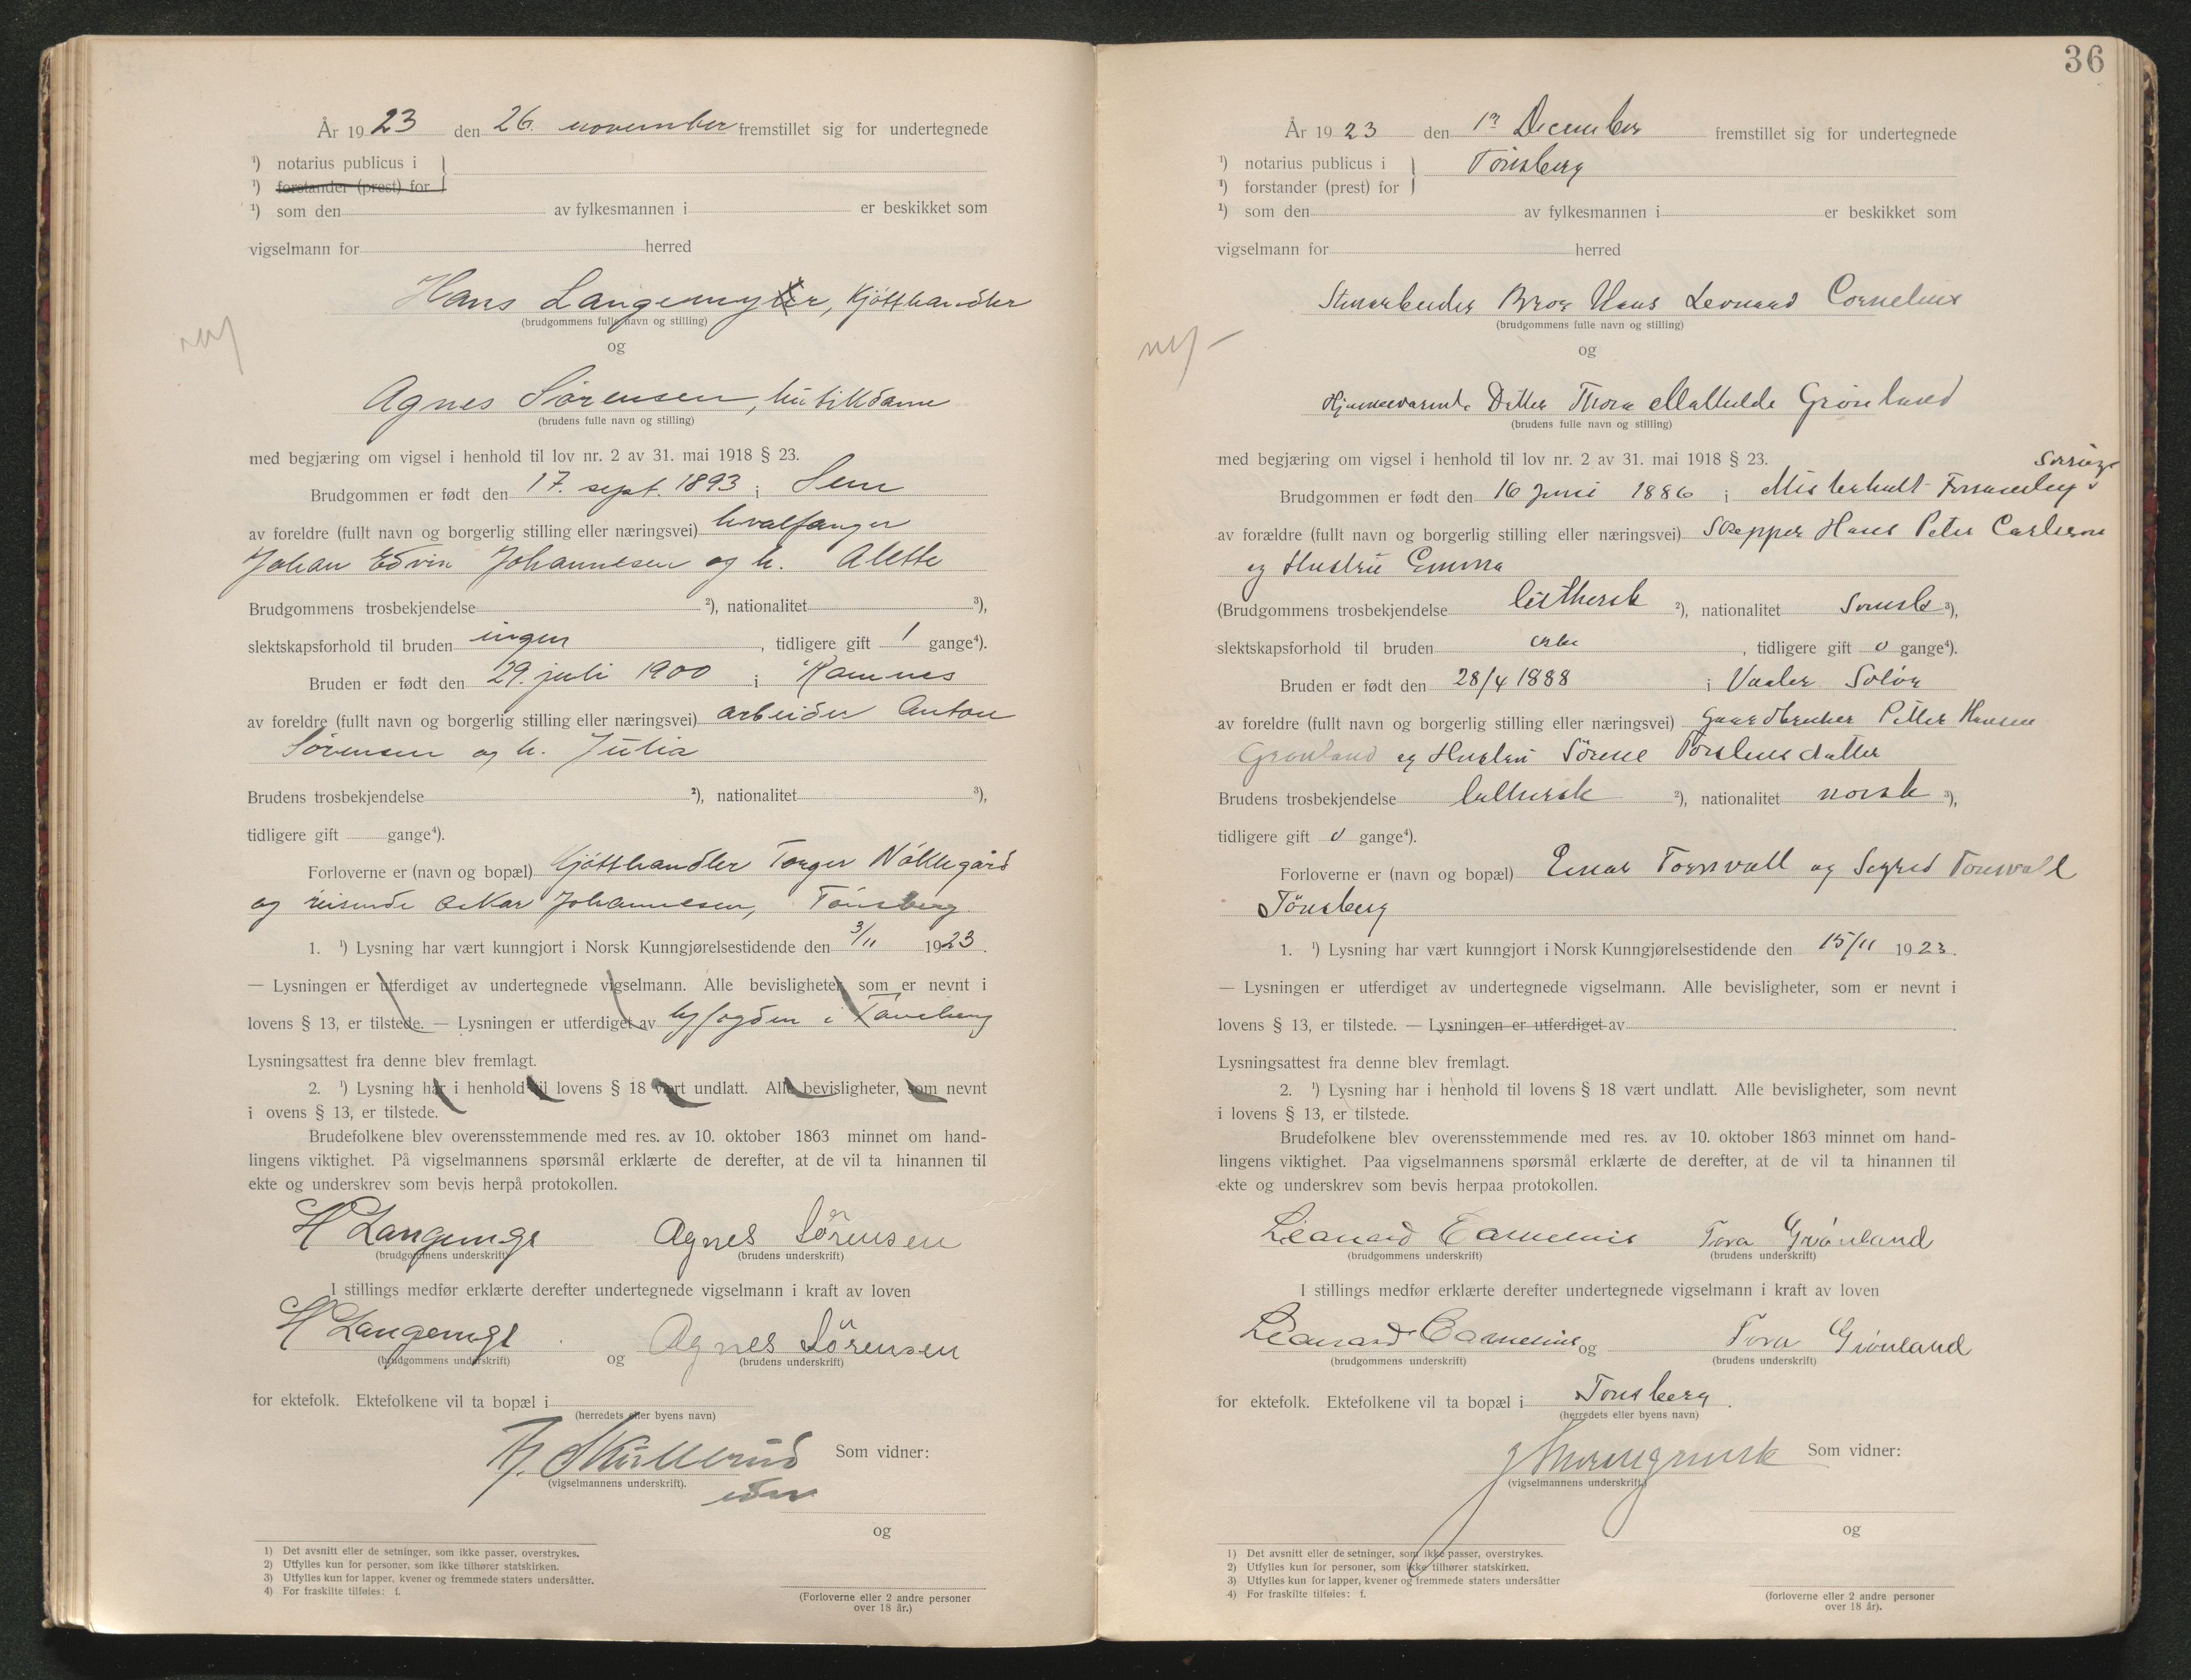 År 1923 den 26. november fremstillet sig for undertegnede
¹) notarius publicus i
¹) forstander (prest) for
¹) som den av fylkesmannen i er beskikket som
vigselmann for herred
Hans Langemyr, Kjötthandler
(brudgommens fulle navn og stilling)
og
Agnes Sörensen, butikdame
(brudens fulle navn og stilling)
med begjæring om vigsel i henhold til lov nr. 2 av 31. mai 1918 § 23.
Brudgommen er født den 17. sept. 1893 i Sem
av foreldre (fullt navn og borgerlig stilling eller næringsvei) hvalfanger
Johan Edvin Johannesen og h. Alette
Brudgommens trosbekjendelse ²), nationalitet ³),
slektskapsforhold til bruden ingen, tidligere gift 1 gange⁴).
Bruden er født den 29. juli 1900 i Ramnes
av foreldre (fullt navn og borgerlig stilling eller næringsvei) arbeider Anton
Sörensen og h. Julia
Brudens trosbekjendelse ²), nationalitet ³),
tidligere gift gange⁴).
Forloverne er (navn og bopæl) Kjötthandler Torger Nöklegård
og reisende Oskar Johannesen, Tönsberg
1. ¹) Lysning har vært kunngjort i Norsk Kunngjørelsestidende den 3/11 1923.
— Lysningen er utferdiget av undertegnede vigselmann. Alle bevisligheter, som er nevnt i
lovens § 13, er tilstede. — Lysningen er utferdiget av byfogden i Tönsberg
Lysningsattest fra denne blev fremlagt.
2. ¹) Lysning har i henhold til lovens § 18 vært undlatt. Alle bevisligheter, som nevnt
i ovens § 13, er tilstede.
Brudefolkene blev overensstemmende med res. av 10. oktober 1863 minnet om hand-
lingens viktighet. På vigselmannens spørsmål erklærte de derefter, at de vil ta hinannen til
ekte og underskrev som bevis herpå protokollen.
H Langemyr Agnes Sörensen
(brudgommens underskrift) (brudens underskrift)
I stillings medfør erklærte derefter undertegnede vigselmann i kraft av loven
H Langemyr og Agnes Sörensen
(brudgommens underskrift) (brudens underskrift)
for ektefolk. Ektefolkene vil ta bopæl i
(herredets eller byens navn)
Skullerud Som vidner:
(vigselmannens underskrift).
edm
og
1) Det avsnitt eller de setninger, som ikke passer, overstrykes.
2) Utfylles kun for personer, som ikke tilhører statskirken.
3) Utfylles kun for lapper, kvener og fremmede staters undersåtter.
4) For fraskilte tilføies: f.
(Forloverne eller 2 andre personer
over 18 år.)
36
År 1923 den 1ª December fremstillet sig for undertegnede
¹) notarius publicus i Tönsberg
¹) forstander (prest) for
¹) som den av fylkesmannen i er beskikket som
vigselmann for herred
Stenarbeider Bror Hans Leonard Cornelius
(brudgommens fulle navn og stilling)
og
Hjemmeværende Datter Thora Mathilde Grönland
(brudens fulle navn og stilling)
med begjæring om vigsel i henhold til lov nr. 2 av 31. mai 1918 § 23.
Sverige
Brudgommen er født den 16 Juni 1886 i Misterhult
av forældre (fullt navn og borgerlig stilling eller næringsvei) Skepper Hans Peter Carlsson
og Hustru Emma
(Brudgommens trosbekjendelse luthersk ²), nationalitet svensk ³),
slektskapsforhold til bruden , tidligere gift 0 gange⁴).
Bruden er født den 28/4 1888 i Vaaler Solör
av foreldre (fullt navn og borgerlig stilling eller næringsvei) Gaardbruker Petter Hansen
Grönland og Hustru Sörene Torstensdatter
Brudens trosbekjendelse luthersk ²), nationalitet norsk ³),
tidligere gift 0 gange⁴).
Forloverne er (navn og bopæl) Einar Tornvall og Sigrid Tornvall
Tönsberg
1. ¹) Lysning har vært kunngjort i Norsk Kunngjørelsestidende den 15/11 1923.
— Lysningen er utferdiget av undertegnede vigselmann. Alle bevisligheter, som er nevnt i
lovens § 13, er tilstede. — Lysningen er utferdiget av
Lysningsattest fra denne blev fremlagt.
2. ¹) Lysning har i henhold til lovens § 18 vært undlatt. Alle bevisligheter, som nevnt
i lovens § 13, er tilstede.
Brudefolkene blev overensstemmende med res. av 10. oktober 1863 minnet om hand-
lingens viktighet. Paa vigselmannens spørsmål erklærte de derefter, at de vil ta hinannen til
ekte og underskrev som bevis herpaa protokollen.
Leonard Cornelius Tora Grönland
(brudgommens underskrift) (brudens underskrift)
I stillings medfør erklærte derefter undertegnede vigselmann i kraft av loven
Leonard Cornelius og Tora Grönland
(brudgommens underskrift) (brudens underskrift)
for ektefolk. Ektefolkene vil ta bopæl i Tönsberg.
(herredets eller byens navn)
Som vidner:
(vigselmannens underskrift)
og
1) Det avsnitt eller de setninger, som ikke passer, overstrykes.
2) Utfylles kun for personer, som ikke tilhører statskirken.
3) Utfylles kun for lapper, kvener og fremmede staters undersåtter
4) For fraskilte tilføies: f.
(forloverne eller 2 andre personer
over 18 år).